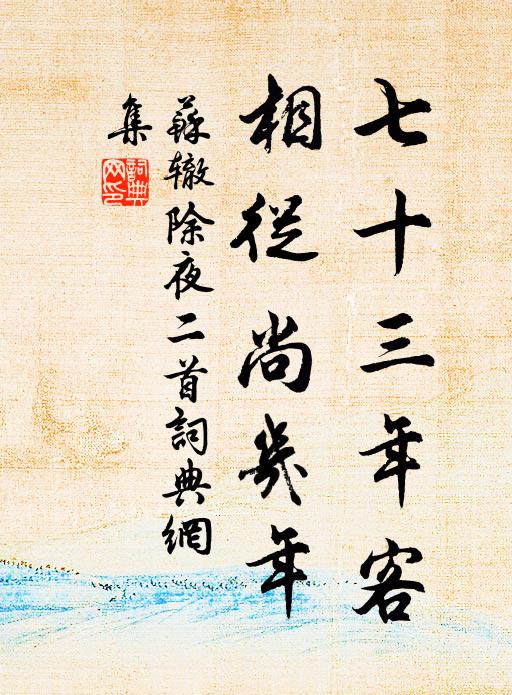 七十三年客
相從尚幾年
蘇轍除夜二首詞典網
集
詞典網印